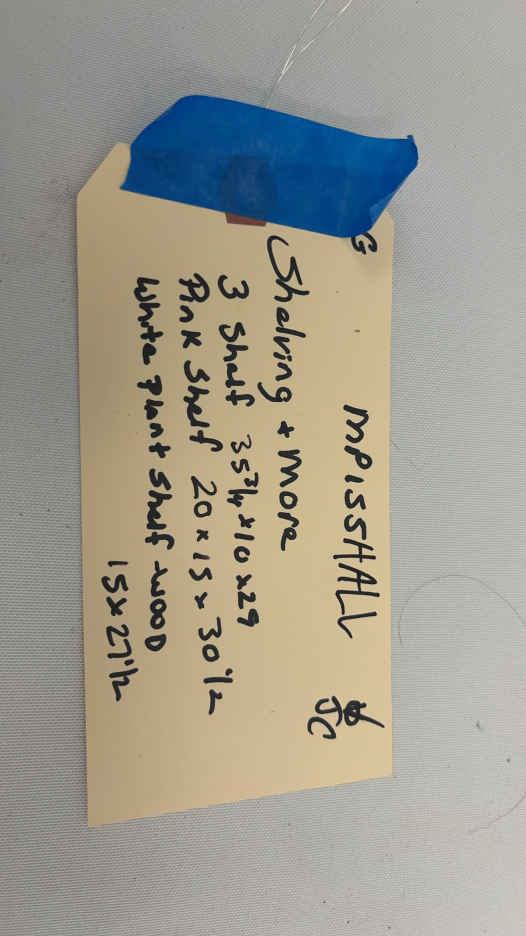 G
MPISSHALL
JC
Shelving + more
3 Shelf 35 3/4 x 10 x 29
Pink Shelf 20 x 15 x 30 1/2
White Plant Shelf - WOOD
15 x 27 1/2